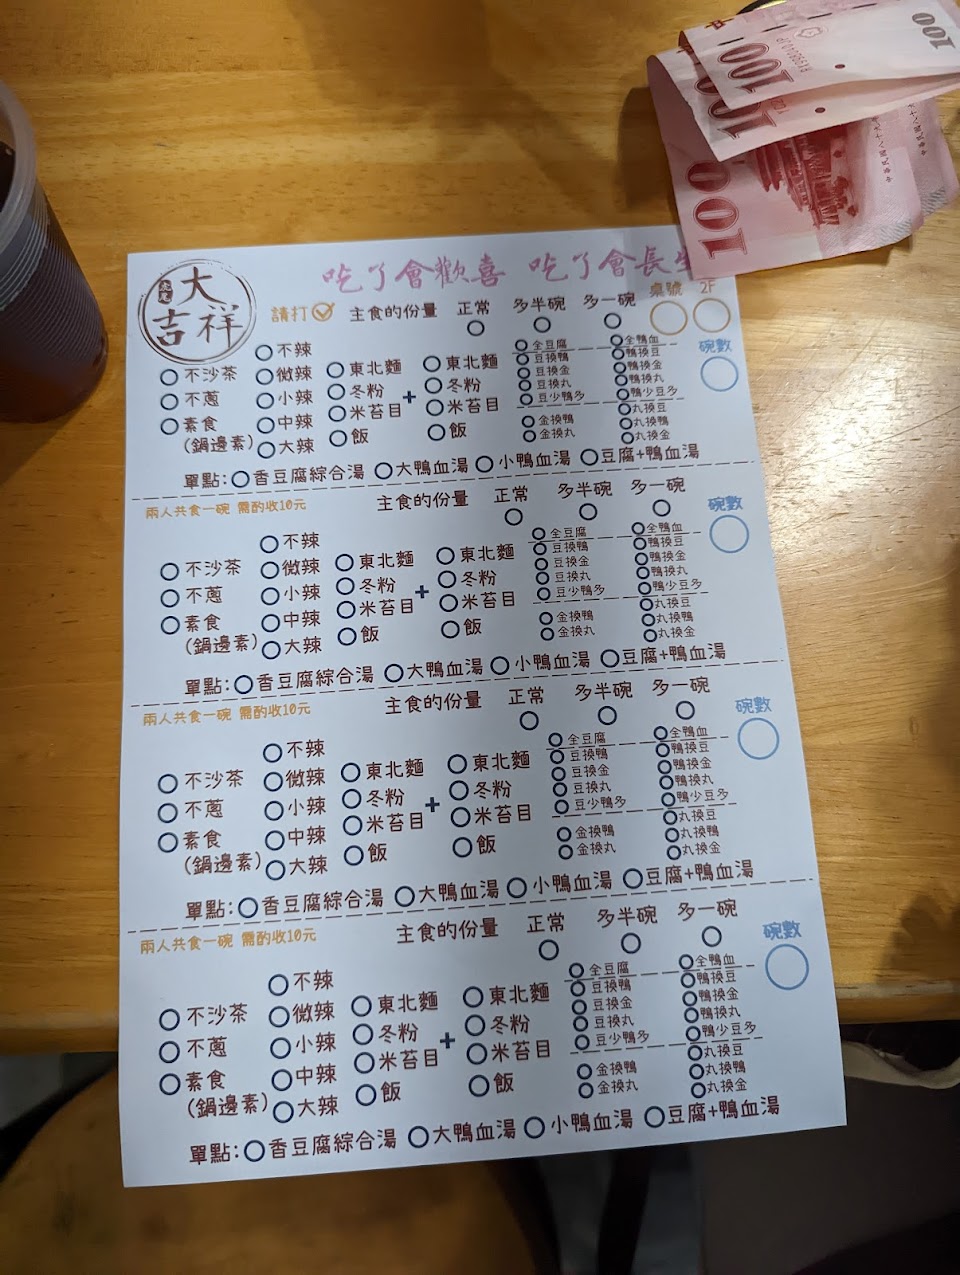 100
100
100
100
中華民國八十九
中華民國八十九
大
吉祥
吃了會歡喜 吃了會長
請打 主食的份量 正常 多半碗 多一碗 桌號 2F
碗數
不沙茶 不辣 東北麵 + 東北麵 全豆腐 全鴨血
不蔥 微辣 冬粉 冬粉 豆換鴨 鴨換豆
素食 小辣 米苔目 米苔目 豆換金 鴨換金
(鍋邊素) 中辣 飯 飯 豆換丸 鴨換丸
大辣 豆少鴨多 鴨少豆多
金換鴨 丸換豆
金換丸 丸換鴨
丸換金
單點: 香豆腐綜合湯 大鴨血湯 小鴨血湯 豆腐+鴨血湯
兩人共食一碗 需酌收10元 主食的份量 正常 多半碗 多一碗 碗數
不沙茶 不辣 東北麵 + 東北麵 全豆腐 全鴨血
不蔥 微辣 冬粉 冬粉 豆換鴨 鴨換豆
素食 小辣 米苔目 米苔目 豆換金 鴨換金
(鍋邊素) 中辣 飯 飯 豆換丸 鴨換丸
大辣 豆少鴨多 鴨少豆多
金換鴨 丸換豆
金換丸 丸換鴨
丸換金
單點: 香豆腐綜合湯 大鴨血湯 小鴨血湯 豆腐+鴨血湯
兩人共食一碗 需酌收10元 主食的份量 正常 多半碗 多一碗 碗數
不沙茶 不辣 東北麵 + 東北麵 全豆腐 全鴨血
不蔥 微辣 冬粉 冬粉 豆換鴨 鴨換豆
素食 小辣 米苔目 米苔目 豆換金 鴨換金
(鍋邊素) 中辣 飯 飯 豆換丸 鴨換丸
大辣 豆少鴨多 鴨少豆多
金換鴨 丸換豆
金換丸 丸換鴨
丸換金
單點: 香豆腐綜合湯 大鴨血湯 小鴨血湯 豆腐+鴨血湯
兩人共食一碗 需酌收10元 主食的份量 正常 多半碗 多一碗 碗數
不沙茶 不辣 東北麵 + 東北麵 全豆腐 全鴨血
不蔥 微辣 冬粉 冬粉 豆換鴨 鴨換豆
素食 小辣 米苔目 米苔目 豆換金 鴨換金
(鍋邊素) 中辣 飯 飯 豆換丸 鴨換丸
大辣 豆少鴨多 鴨少豆多
金換鴨 丸換豆
金換丸 丸換鴨
丸換金
單點: 香豆腐綜合湯 大鴨血湯 小鴨血湯 豆腐+鴨血湯